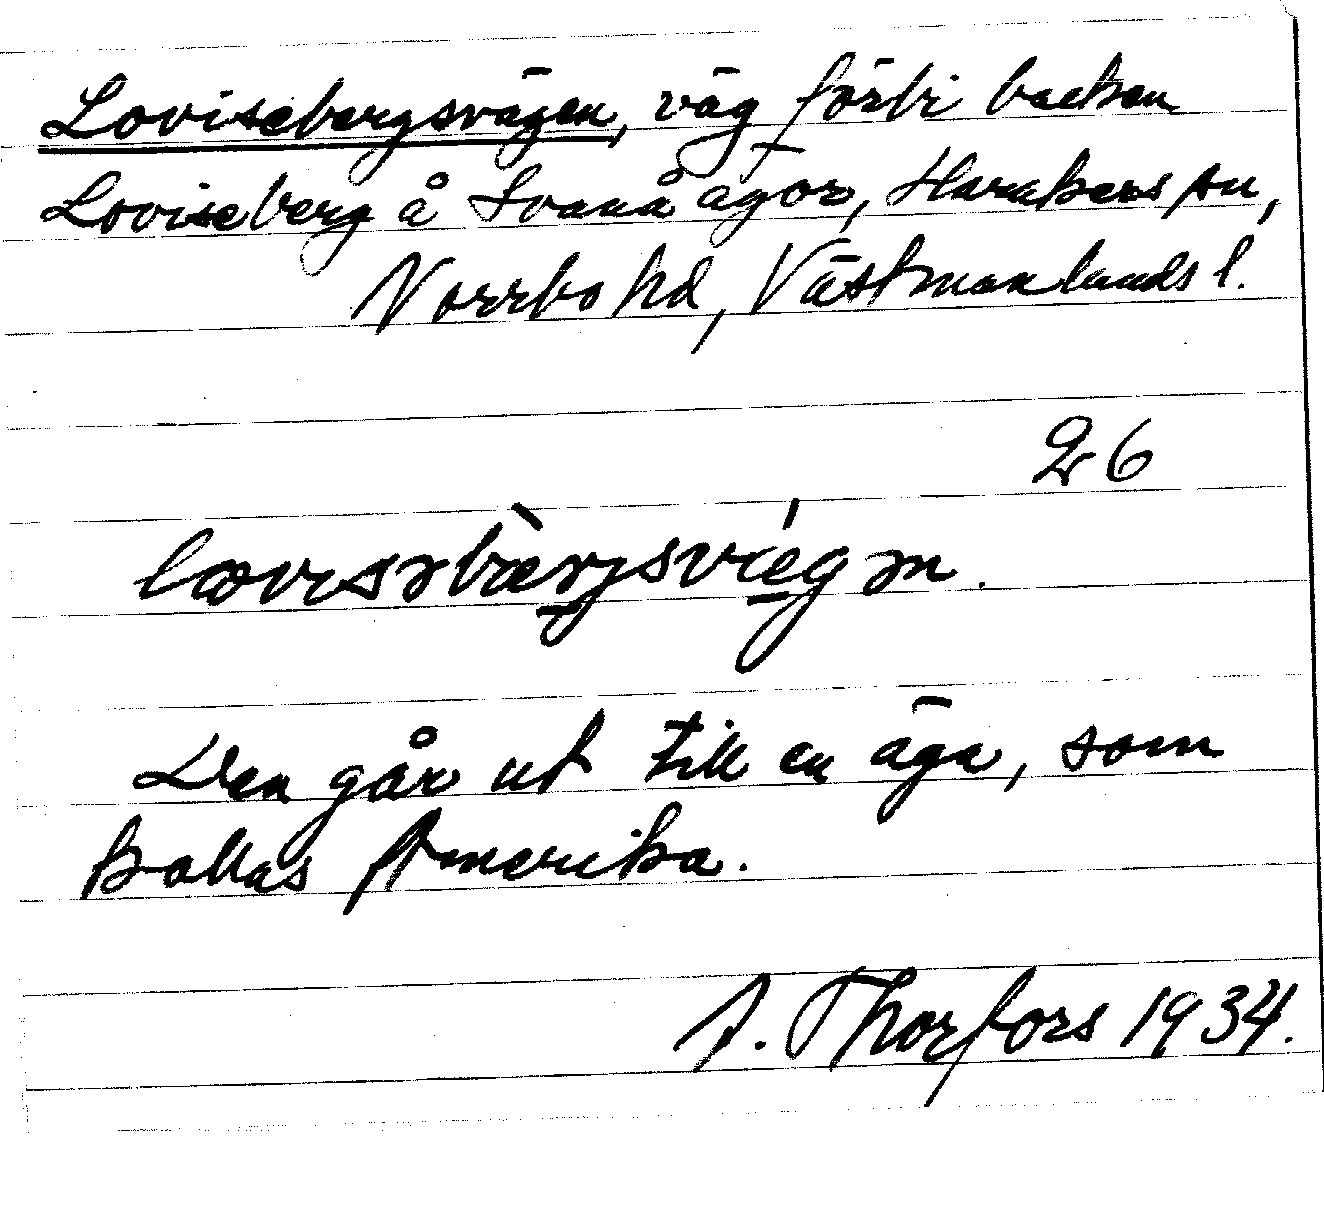 Lovisebergsvägen, väg förbi backen
Loviseberg å Svanå ägor, Harakers sn,
Norrbo hd, Västmanlands l.
26
Den går ut till en äga, som
kallas Amerika.
A. Thorfors 1934.